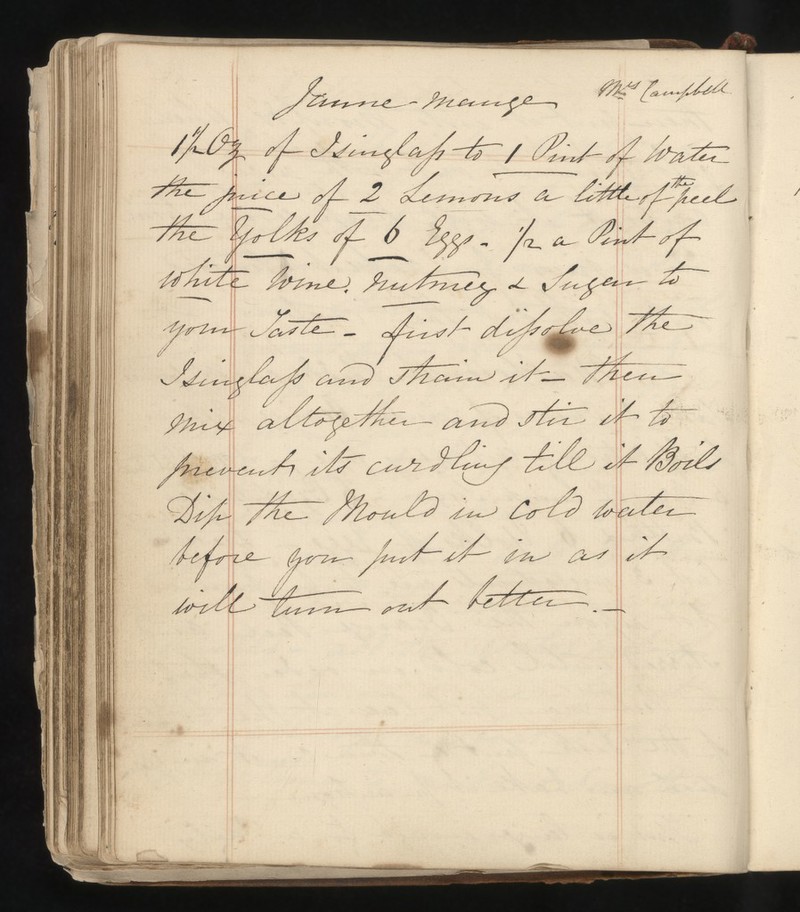 Jaune-mange Mrs Campbell
1½ Oz of Isinglass to 1 Pint of Water
the juice of 2 Lemons a little of the peel
the Yolks of 6 Eggs - ½ a Pint of
white Wine. Nutmeg & Sugar to
your Taste - first dissolve the
Isinglass and strain it - then
mix altogether and stir it to
prevent its curdling till it Boils
Dip the Mould in cold water
before you put it in as it
will turn out better. -